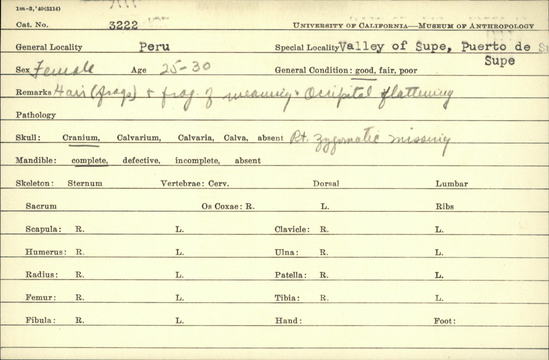 1m-8,'40(5214)
Cat. No. 3222 UNIVERSITY OF CALIFORNIA—MUSEUM OF ANTHROPOLOGY
General Locality Peru Special Locality Valley of Supe, Puerto de Supe
Sex Female Age 25-30 General Condition: good, fair, poor
Remarks Hair (frags) & frag. of weaving. Occipital flattening
Pathology
Skull: Cranium, Calvarium, Calvaria, Calva, absent Rt. zygomatic missing
Mandible: complete, defective, incomplete, absent
Skeleton: Sternum Vertebrae: Cerv. Dorsal Lumbar
Sacrum Os Coxae: R. L. Ribs
Scapula: R. L. Clavicle: R. L.
Humerus: R. L. Ulna: R. L.
Radius: R. L. Patella: R. L.
Femur: R. L. Tibia: R. L.
Fibula: R. L. Hand: Foot: